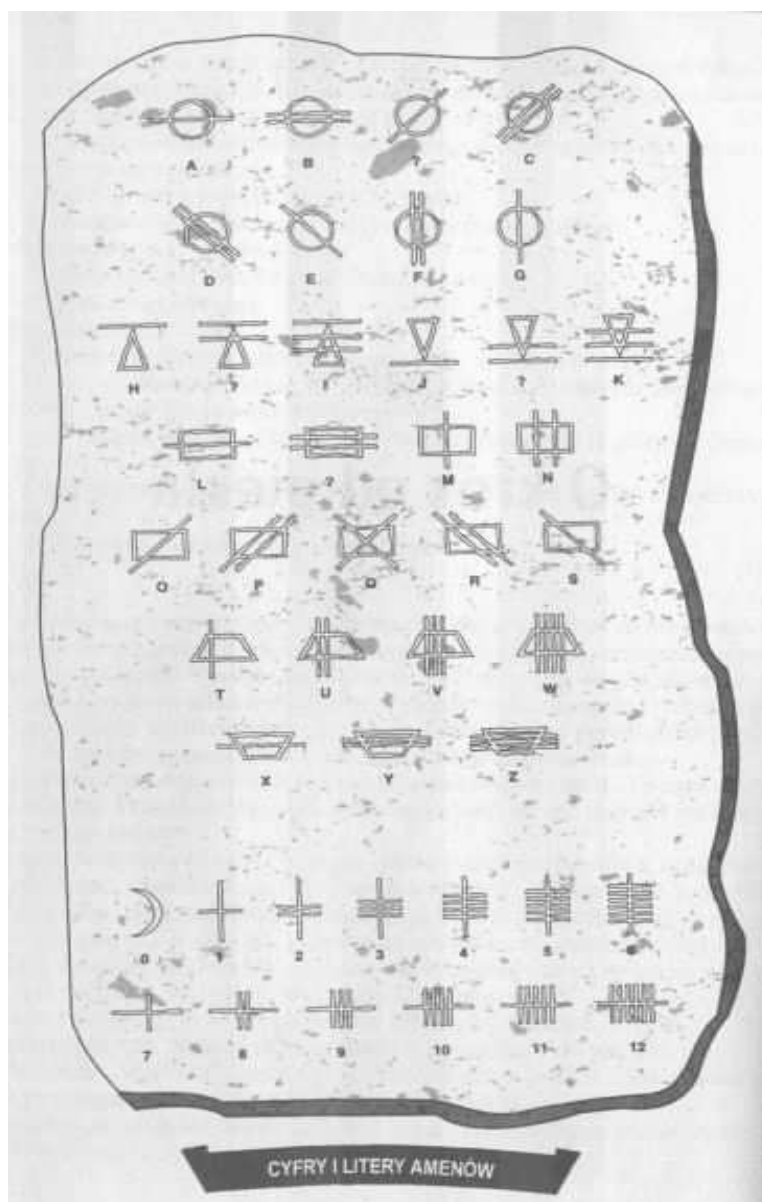 A B ? C
D E F G
H ? I J ? K
L ? M N
O P Q R S
T U V W
X Y Z
0 1 2 3 4 5 6
7 8 9 10 11 12
CYFRY I LITERY AMENÓW